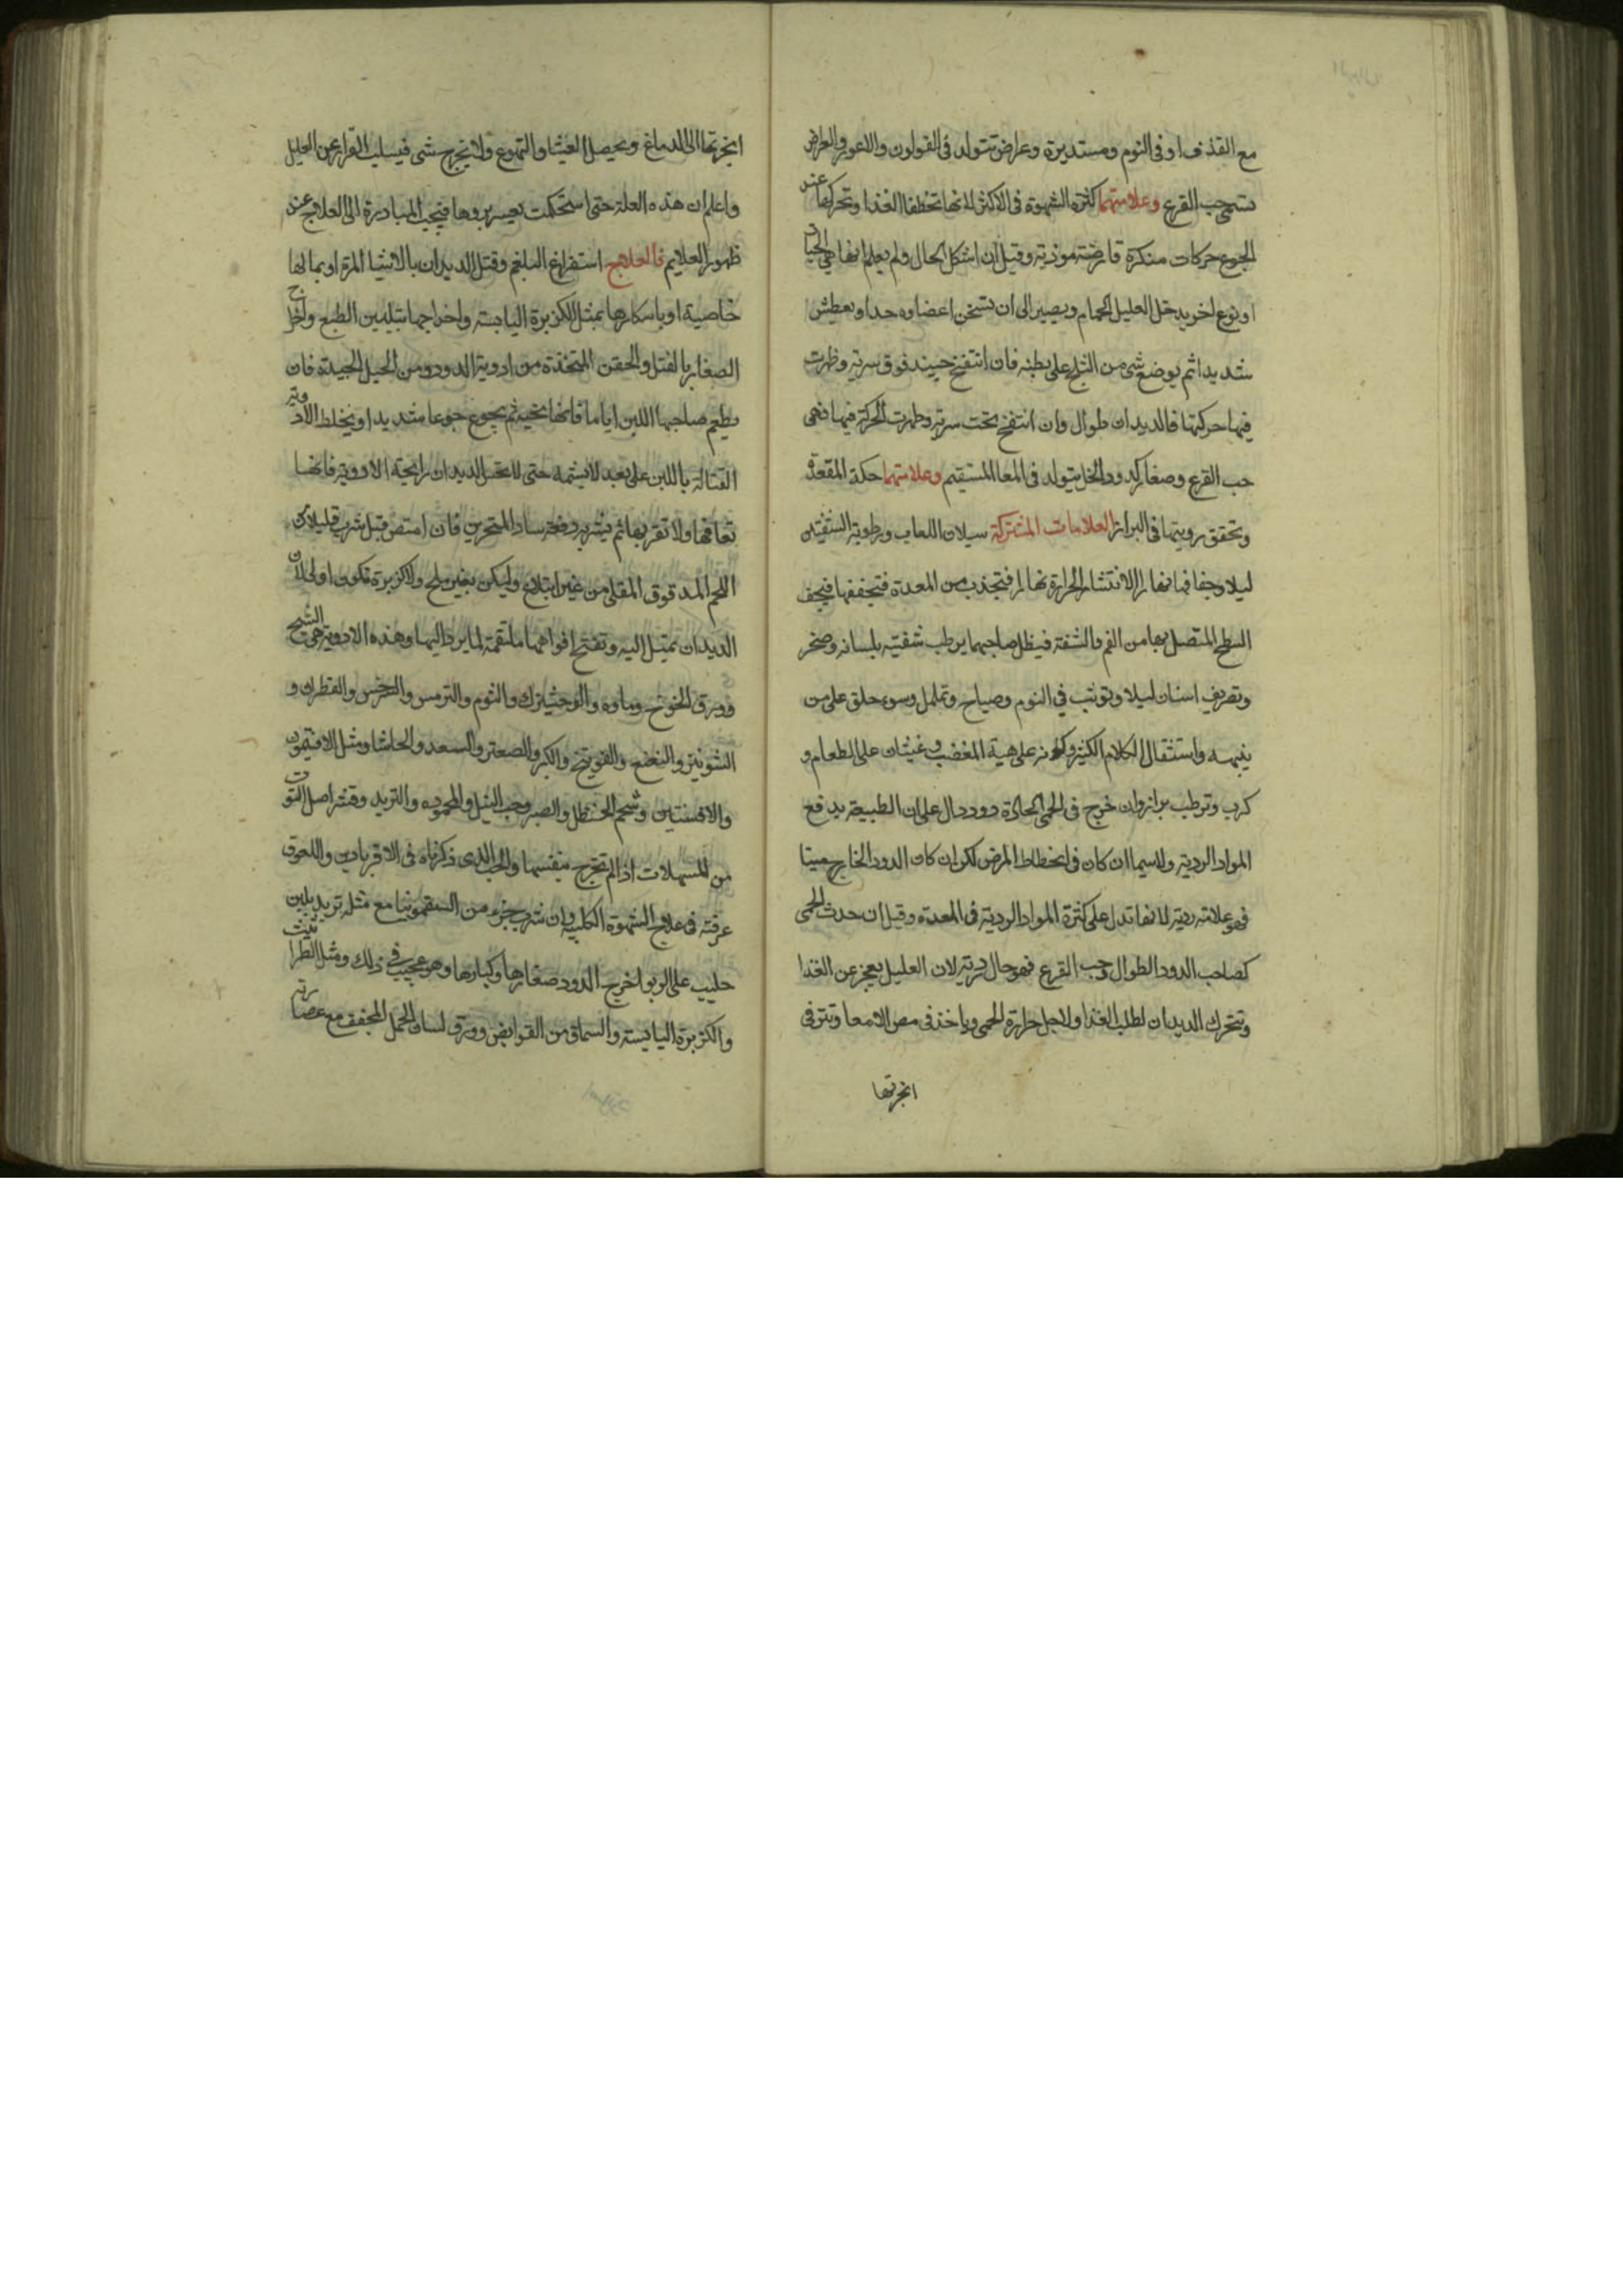 مع القذف او فى النوم ومستديرة وعراض تتولد فى القولون والاعور والعراض
تسمى حب القرع وعلامتهما كثرة الشهوة فى الاكثر لانها تخطف الغذا وتحركها عند
الجوع حركات منكرة قارضة موذية وقيل ان اشكل الحال ولم يعلم انها هى الحيات
او نوع اخر يدخل العليل الحمام ويصير الى ان تسخن اعضاوه جدا ويعطش
شديدا ثم يوضع شى من الثلج على بطنه فان انتفخ حينيذ فوق سرته وظهرت
فيها حركتها فالديدان طوال وان انتفخ تحت سرته وظهرت الحركة فيها فهى
حب القرع وصغار كدود الخل يتولد فى المعا المستقيم وعلامتهما حكة المقعدة
وتحقق رويتها فى البراز العلامات المشتركة سيلان اللعاب ورطوبة الشفتين
ليلا وجفافهما نهارا لانتشار الحرارة نهارا فتجذب من المعدة فتجففها فيجف
السطح المتصل بها من الفم والشفة فيظل صاحبهما يرطب شفتيه بلسانه وضجر
وتصريف اسنان ليلا وتوثب فى النوم وصياح وتململ وسوء خلق على من
ينبهه واستثقال الكلام الكثير وكونه على هية المغضب وغثيان على الطعام و
كرب وترطب براز وان خرج فى الحمى الحادة دود دال على ان الطبيعة يدفع
المواد الردية ولاسيما ان كان فى انحطاط المرض لكن ان كان الدود الخارج ميتا
فهو علامة ردية لانها تدل على كثرة المواد الردية فى المعدة وقيل ان حدث الحمى
كصاحب الدود الطوال وحب القرع فهو حال ردية لان العليل يعجز عن الغذا
وتتحرك الديدان لطلب الغذا ولاجل حرارة الحمى وياخذ فى مص الامعا وتترقى
ابخرتها
ابخرتها الى الدماغ ويحصل الغيثا والتهوع ولا يخرج شى فيسلب القرار عن العليل
واعلم ان هذه العلة حتى استحكمت يعسر بروها فيجب المبادرة الى العلاج عند
ظهور العلايم فالعلاج استفراغ البلغم وقتل الديدان بالاشيا المرة او بما لها
خاصية او باسكارها بمثل الكزبرة اليابسة واخراجها بتليين الطبع واخراج
الصغار بالفتل والحقن المتخذة من ادوية الدود ومن الحيل الجيدة فان
يطعم صاحبها اللبن اياما فانها تحيه ثم يجوع جوعا شديدا ويخلط الادوية
القتالة باللبن على بعد لا يشمه حتى لا تحس الديدان رايحة الادوية فانها
تعافها ولا تقربها ثم يشربه دفعة ساد المنخرين فان امتص قبل شربه قليلا من
اللحم المدقوق المقلى من غير ابتلاع وليكن بغير ملح ولا كزبرة تكون اولى لان
الديدان تميل اليه وتفتح افواهها ملتقمة لما يرد اليها وهذه الادوية هى الشيح
وورق الخوخ وماوه والوخشيزك والثوم والترمس والسرخس والقطران و
الشونيز والنعنع والفوتنج والكبر والصعتر والسعد والحاشا ومثل الافتيمون
والافسنتين وشحم الحنظل والصبر وحب النيل والمحموده والتربد وقشر اصل التوت
من المسهلات اذا لم تخرج بنفسها والحب الذى ذكرناه فى الاقرباذين واللعوق
عرفته فى علاج الشهوة الكلبية وان شرب جزء من السقمونيا مع مثله تربد بلبن
حليب على الريق اخرج الدود صغارها وكبارها وهو عجيب فى ذلك ومثل الطراثيث
والكزبرة اليابسة والسماق من القوابض وورق لسان الحمل المجفف مع عصارته